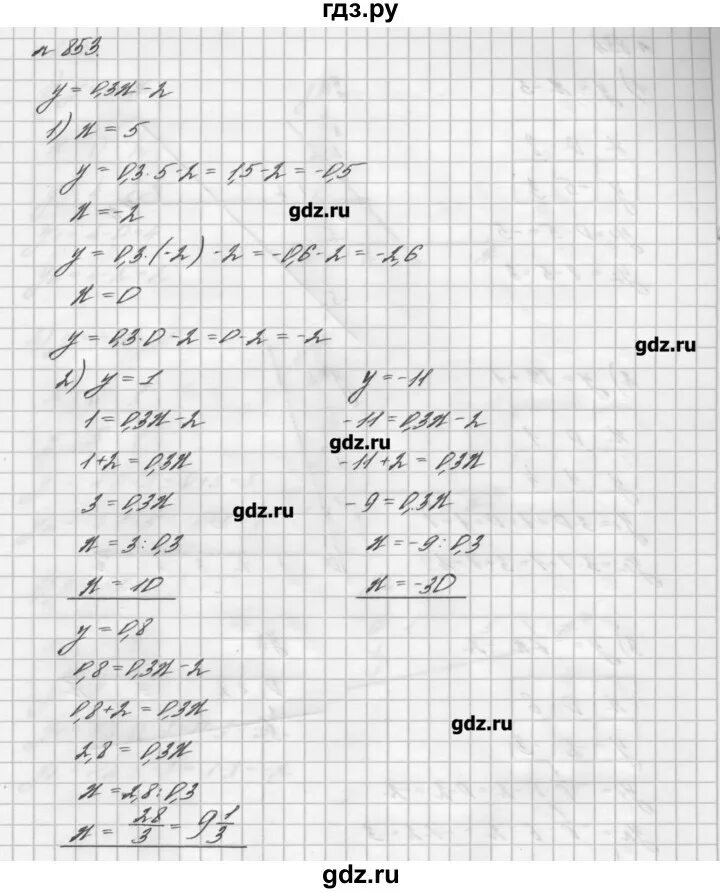 гдз.ру
№ 853.
y = 0,3x - 2
1) x = 5
y = 0,3·5-2 = 1,5-2 = -0,5
x = -2
gdz.ru
y = 0,3·(-2) - 2 = -0,6-2 = -2,6
x = 0
y = 0,3·0 - 2 = 0-2 = -2
gdz.ru
2) y = 1
1 = 0,3x - 2
1+2 = 0,3x
3 = 0,3x
x = 3:0,3
x = 10
y = -11
-11 = 0,3x - 2
gdz.ru
-11+2 = 0,3x
-9 = 0,3x
gdz.ru
x = -9:0,3
x = -30
y = 0,8
0,8 = 0,3x - 2
0,8+2 = 0,3x
gdz.ru
2,8 = 0,3x
x = 2,8:0,3
x = 28/3 = 9 1/3
gdz.ru